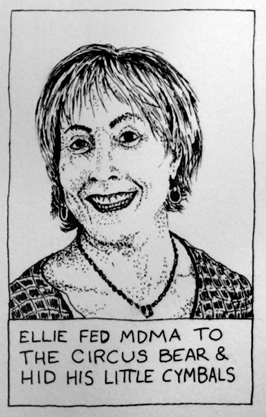 ELLIE FED MDMA TO
THE CIRCUS BEAR &
HID HIS LITTLE CYMBALS